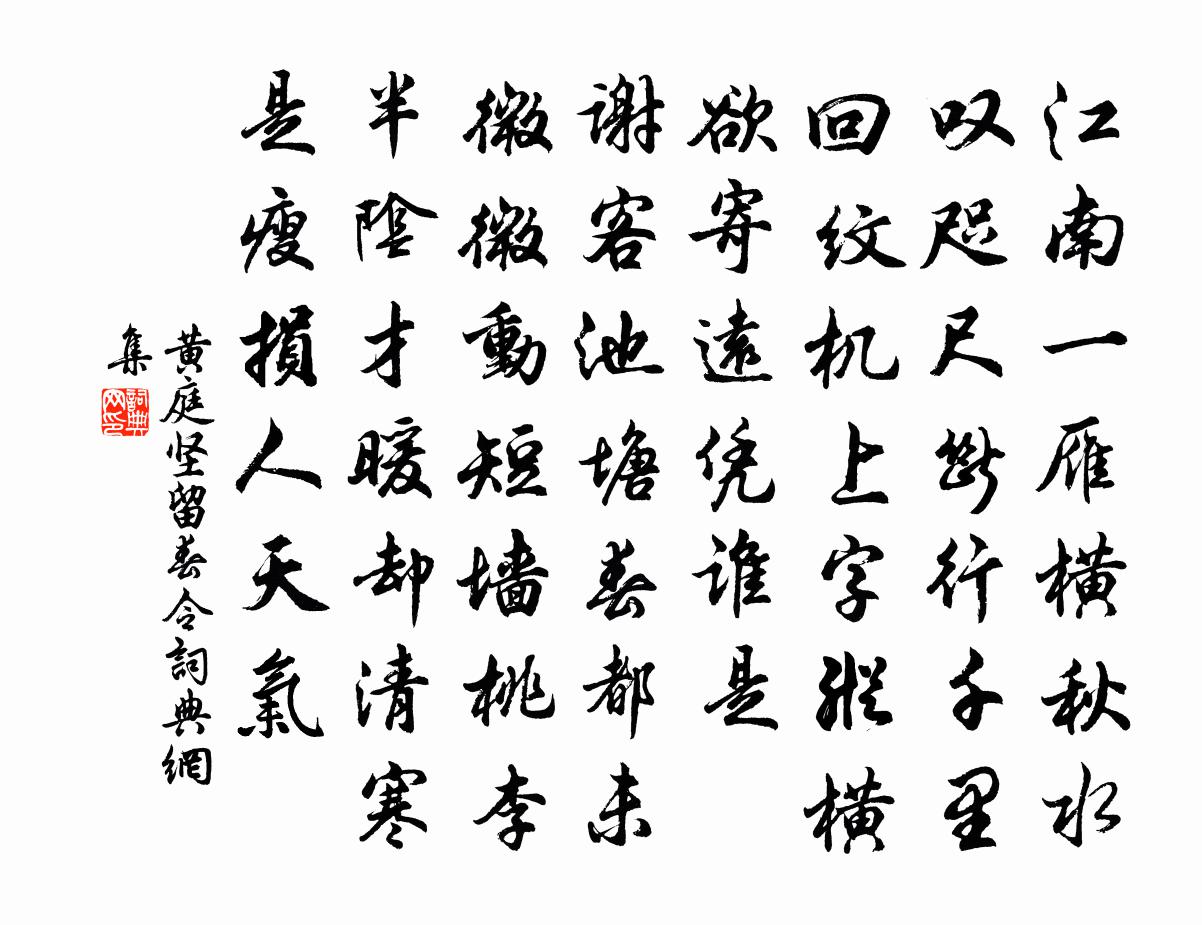 江南一雁橫秋水
叹咫尺断行千里
回纹机上字縱橫
欲寄遠凭誰是
謝客池塘春都未
微微動短墙桃李
半陰才暖却清寒
是瘦損人天氣
黄庭坚留春令詞典網
集
詞典网印